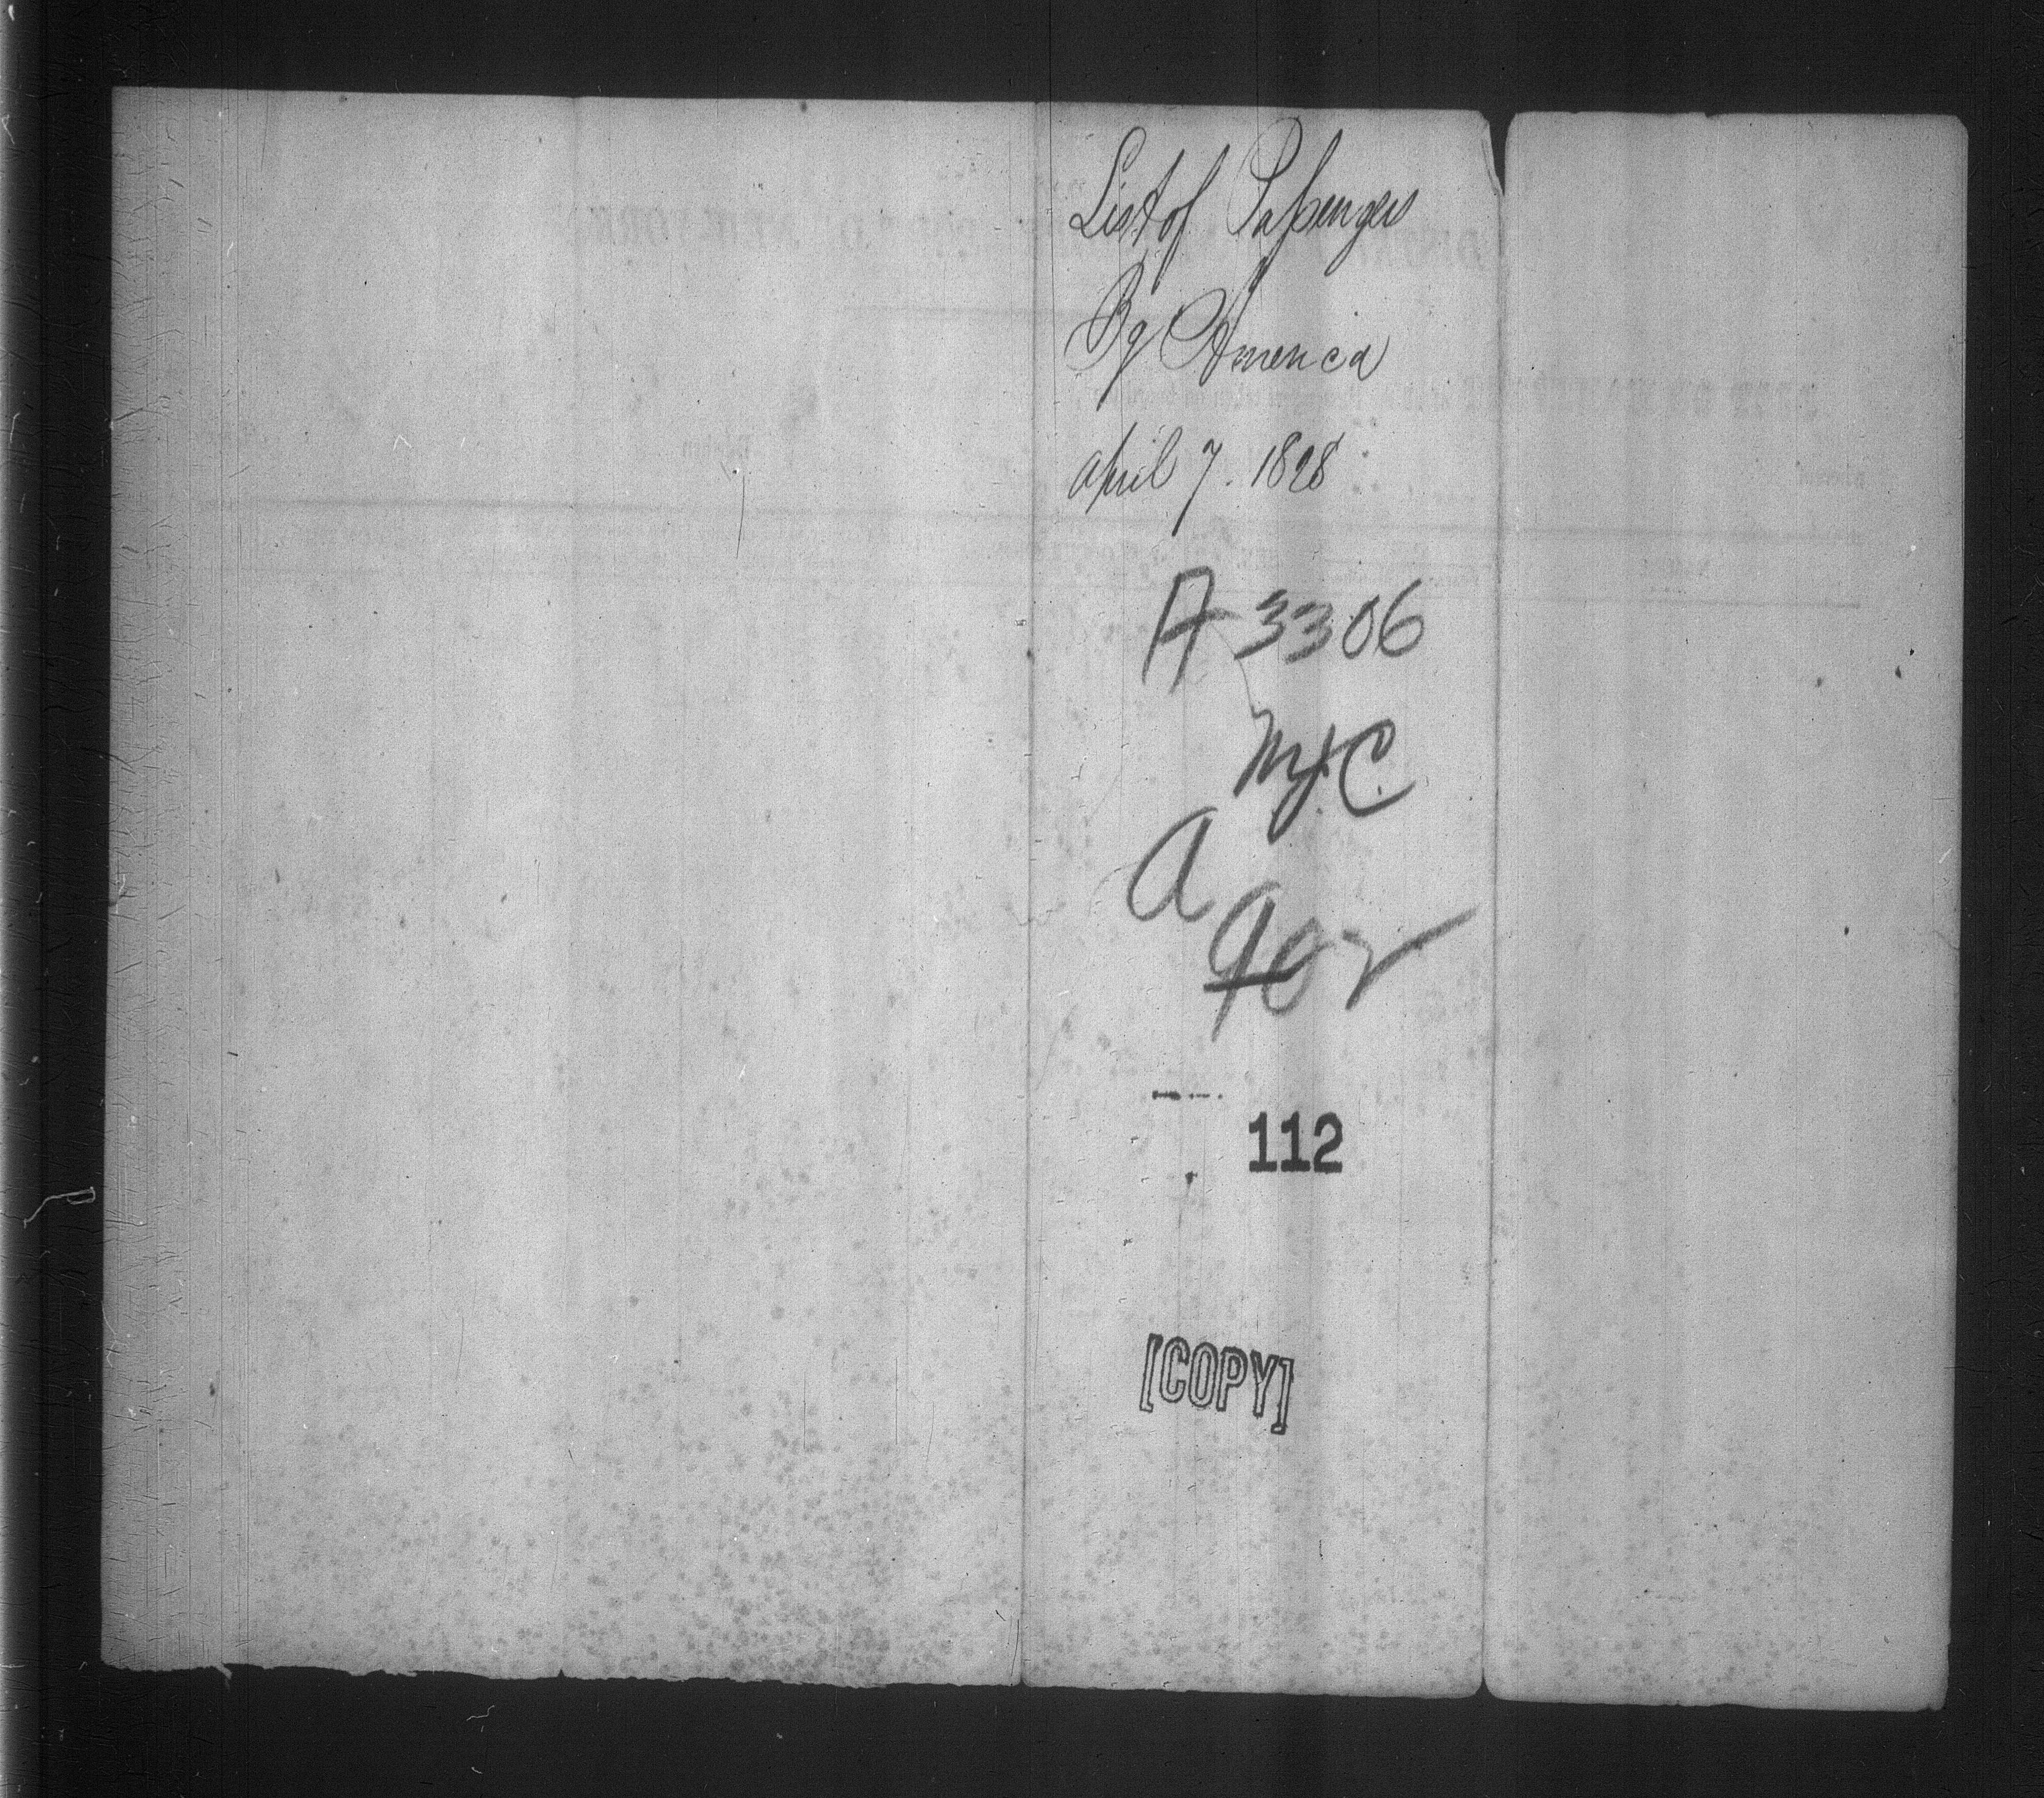 List of Passengers
Bg America
April 7. 1828
A 3306
N.Y.C.
A
902
112
[COPY]